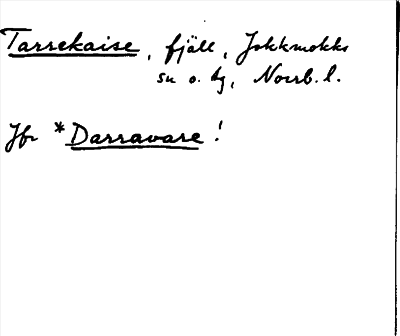 Tarrekaise, fjäll, Jokkmokks
sn o. tg, Norrb. l.
Jfr *Darravare!